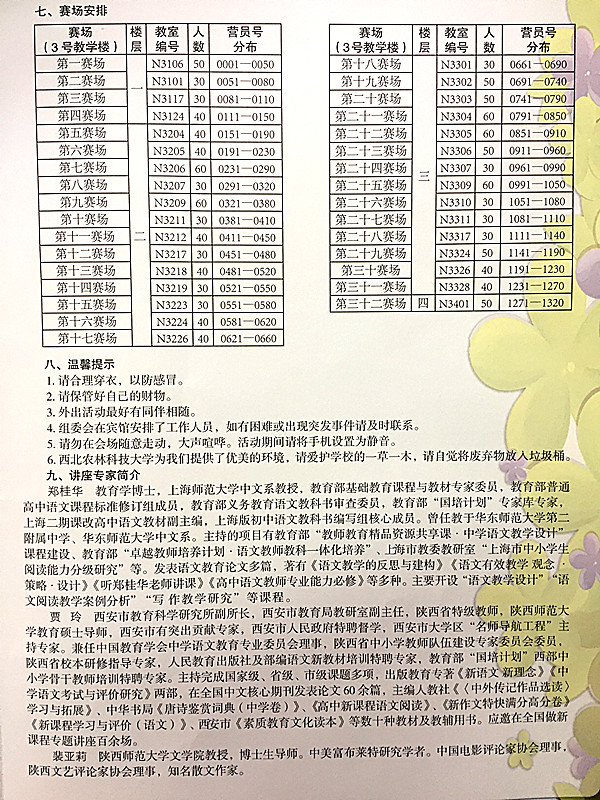 七、赛场安排
赛场（3号教学楼） 楼层 教室编号 人数 营员号分布
第一赛场 一 N3106 50 0001—0050
第二赛场 N3101 30 0051—0080
第三赛场 N3117 30 0081—0110
第四赛场 N3124 40 0111—0150
第五赛场 二 N3204 40 0151—0190
第六赛场 N3205 40 0191—0230
第七赛场 N3206 60 0231—0290
第八赛场 N3207 30 0291—0320
第九赛场 N3209 60 0321—0380
第十赛场 N3211 30 0381—0410
第十一赛场 N3212 40 0411—0450
第十二赛场 N3217 30 0451—0480
第十三赛场 N3218 40 0481—0520
第十四赛场 N3219 30 0521—0550
第十五赛场 N3223 30 0551—0580
第十六赛场 N3224 40 0581—0620
第十七赛场 N3226 40 0621—0660
赛场（3号教学楼） 楼层 教室编号 人数 营员号分布
第十八赛场 三 N3301 30 0661—0690
第十九赛场 N3302 50 0691—0740
第二十赛场 N3303 50 0741—0790
第二十一赛场 N3304 60 0791—0850
第二十二赛场 N3305 60 0851—0910
第二十三赛场 N3306 50 0911—0960
第二十四赛场 N3307 30 0961—0990
第二十五赛场 N3309 60 0991—1050
第二十六赛场 N3310 30 1051—1080
第二十七赛场 N3311 30 1081—1110
第二十八赛场 N3317 30 1111—1140
第二十九赛场 N3324 50 1141—1190
第三十赛场 N3326 40 1191—1230
第三十一赛场 N3328 40 1231—1270
第三十二赛场 四 N3401 50 1271—1320
八、温馨提示
1. 请合理穿衣，以防感冒。
2. 请保管好自己的财物。
3. 外出活动最好有同伴相随。
4. 组委会在宾馆安排了工作人员，如有困难或出现突发事件请及时联系。
5. 请勿在会场随意走动，大声喧哗。活动期间请将手机设置为静音。
6. 西北农林科技大学为我们提供了优美的环境，请爱护学校的一草一木，请自觉将废弃物放入垃圾桶。
九、讲座专家简介
郑桂华 教育学博士，上海师范大学中文系教授，教育部基础教育课程与教材专家委员，教育部普通
高中语文课程标准修订组成员，教育部义务教育语文教科书审查委员，教育部“国培计划”专家库专家，
上海二期课改高中语文教材副主编，上海版初中语文教科书编写组核心成员。曾任教于华东师范大学第二
附属中学、华东师范大学中文系。主持的项目有教育部“教师教育精品资源共享课·中学语文教学设计”
课程建设、教育部“卓越教师培养计划·语文教师教科一体化培养”、上海市教委教研室“上海市中小学生
阅读能力分级研究”等。发表语文教育论文多篇，著有《语文教学的反思与建构》《语文有效教学 观念·
策略·设计》《听郑桂华老师讲课》《高中语文教师专业能力必修》等多种。主要开设“语文教学设计”“语
文阅读教学案例分析”“写作教学研究”等课程。
贾 玲 西安市教育科学研究所副所长，西安市教育局教研室副主任，陕西省特级教师，陕西师范大
学教育硕士导师，西安市有突出贡献专家，西安市人民政府特聘督学，西安市大学区“名师导航工程”主
持专家。兼任中国教育学会中学语文教育专业委员会理事，陕西省中小学教师队伍建设专家委员会委员，
陕西省校本研修指导专家，人民教育出版社及部编语文新教材培训特聘专家，教育部“国培计划”西部中
小学骨干教师培训特聘专家。主持完成国家级、省级、市级课题多项，出版教育专著《新语文 新理念》《中
学语文考试与评价研究》两部，在全国中文核心期刊发表论文60余篇，主编人教社《〈中外传记作品选读〉
学习与拓展》、中华书局《唐诗鉴赏词典（中学卷）》、《高中新课程语文阅读》、《新作文特快满分高分卷》
《新课程学习与评价（语文）》、西安市《素质教育文化读本》等数十种教材及教辅用书。应邀在全国做新
课程专题讲座百余场。
裴亚莉 陕西师范大学文学院教授，博士生导师。中美富布莱特研究学者。中国电影评论家协会理事，
陕西文艺评论家协会理事，知名散文作家。